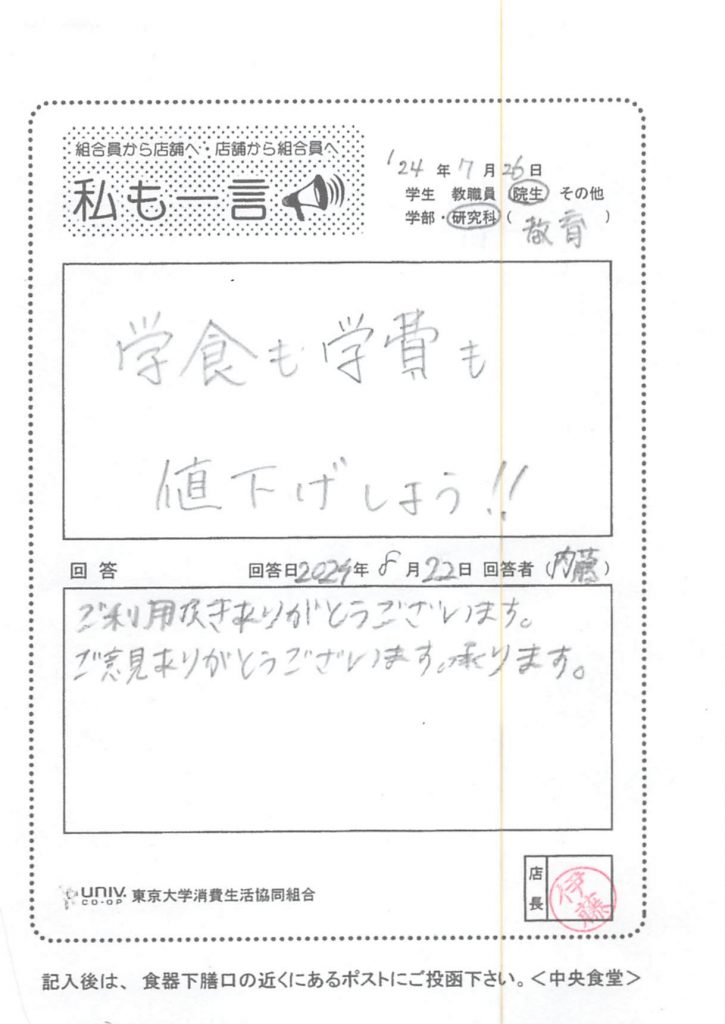 組合員から店舗へ・店舗から組合員へ
私も一言
'24年7月26日
学生 教職員 院生 その他
学部・研究科(教育)
学食も学費も
値下げしよう!!
回答 回答日2024年8月22日 回答者(内藤)
ご利用頂きありがとうございます。
ご意見ありがとうございます。承ります。
UNIV. CO-OP 東京大学消費生活協同組合
店長 伊藤
記入後は、食器下膳口の近くにあるポストにご投函下さい。<中央食堂>